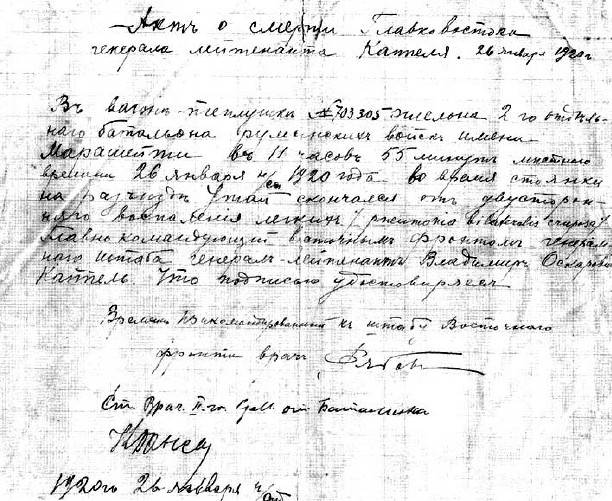 Актъ о смерти Главковостока
генерала лейтенанта Каппеля. 26 января 1920 г
Въ вагонѣ-теплушкѣ № 703305 эшелона 2го отдѣль-
наго баталъона румынскихъ войскъ имени
Марашети въ 11 часовъ 55 минутъ мѣстнаго
времени 26 января н/ст 1920 года во время стоянки
на разъѣздѣ Утай скончался отъ двусторон-
няго воспаленія легкихъ /pneumonia bilateralis cruposa/
Главнокомандующій восточнымъ фронтомъ генераль-
наго штаба генералъ-лейтенантъ Владимиръ Оскаровичъ
Каппель. Что подписью удостовѣряется
прикомандированный къ штабу Восточнаго
фронта врачъ
Ст. Врач от Баталиона
1920 г 26 января н/ст